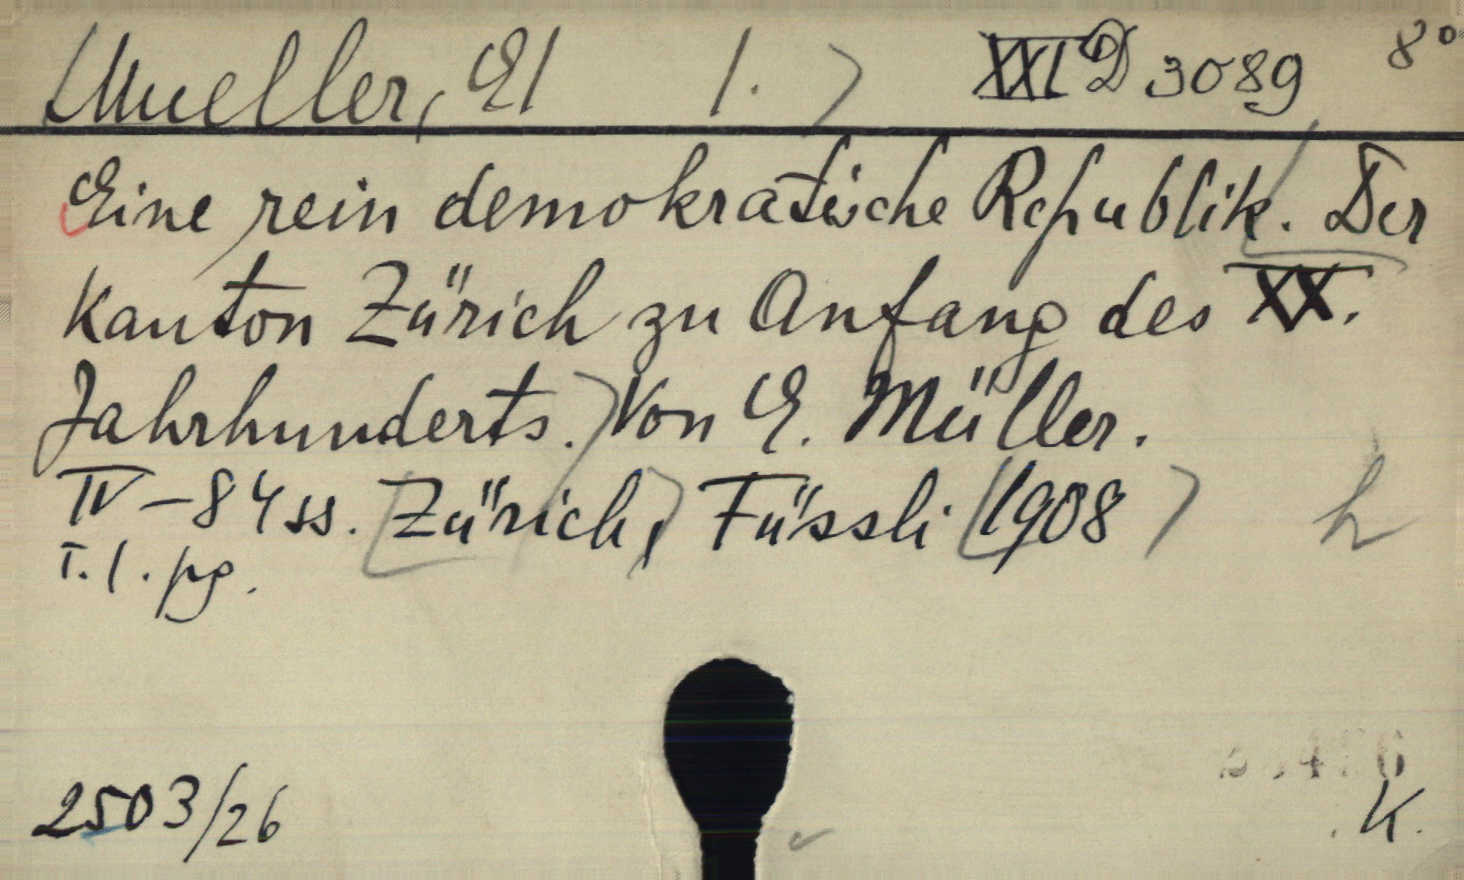 Mueller, E 1. XXI D 3089 8°
Eine rein demokratische Republik. Der
Kanton Zürich zu Anfang des XX.
Jahrhunderts. Von E. Müller.
IV-84 ss. Zürich, Füssli 1908 h
T. 1. pg.
2503/26
K.